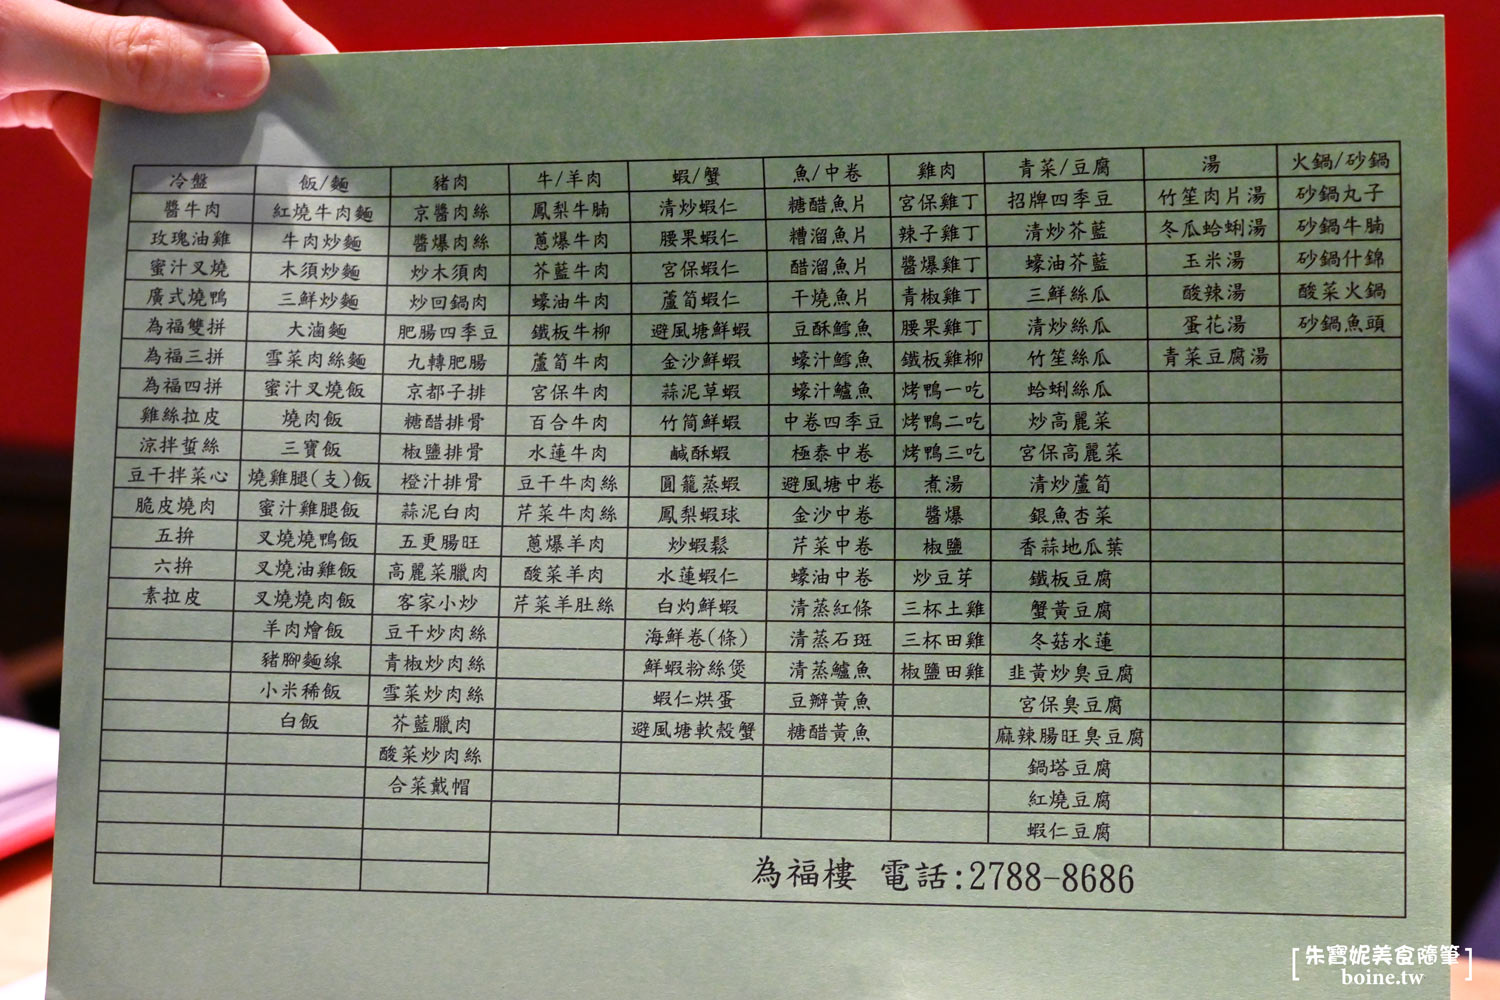 冷盤 飯/麵 豬肉 牛/羊肉 蝦/蟹 魚/中卷 雞肉 青菜/豆腐 湯 火鍋/砂鍋
醬牛肉 紅燒牛肉麵 京醬肉絲 鳳梨牛腩 清炒蝦仁 糖醋魚片 宮保雞丁 招牌四季豆 竹笙肉片湯 砂鍋丸子
玫瑰油雞 牛肉炒麵 醬爆肉絲 蔥爆牛肉 腰果蝦仁 糟溜魚片 辣子雞丁 清炒芥藍 冬瓜蛤蜊湯 砂鍋牛腩
蜜汁叉燒 木須炒麵 炒木須肉 芥藍牛肉 宮保蝦仁 醋溜魚片 醬爆雞丁 蠔油芥藍 玉米湯 砂鍋什錦
廣式燒鴨 三鮮炒麵 炒回鍋肉 蠔油牛肉 蘆筍蝦仁 干燒魚片 青椒雞丁 三鮮絲瓜 酸辣湯 酸菜火鍋
為福雙拼 大滷麵 肥腸四季豆 鐵板牛柳 避風塘鮮蝦 豆酥鱈魚 腰果雞丁 清炒絲瓜 蛋花湯 砂鍋魚頭
為福三拼 雪菜肉絲麵 九轉肥腸 蘆筍牛肉 金沙鮮蝦 蠔汁鱈魚 鐵板雞柳 竹笙絲瓜 青菜豆腐湯
為福四拼 蜜汁叉燒飯 京都子排 宮保牛肉 蒜泥草蝦 蠔汁鱸魚 烤鴨一吃 蛤蜊絲瓜
雞絲拉皮 燒肉飯 糖醋排骨 百合牛肉 竹筒鮮蝦 中卷四季豆 烤鴨二吃 炒高麗菜
涼拌蜇絲 三寶飯 椒鹽排骨 水蓮牛肉 鹹酥蝦 極泰中卷 烤鴨三吃 宮保高麗菜
豆干拌菜心 燒雞腿(支)飯 橙汁排骨 豆干牛肉絲 圓籠蒸蝦 避風塘中卷 煮湯 清炒蘆筍
脆皮燒肉 蜜汁雞腿飯 蒜泥白肉 芹菜牛肉絲 鳳梨蝦球 金沙中卷 醬爆 銀魚杏菜
五拚 叉燒燒鴨飯 五更腸旺 蔥爆羊肉 炒蝦鬆 芹菜中卷 椒鹽 香蒜地瓜葉
六拚 叉燒油雞飯 高麗菜臘肉 酸菜羊肉 水蓮蝦仁 蠔油中卷 炒豆芽 鐵板豆腐
素拉皮 叉燒燒肉飯 客家小炒 芹菜羊肚絲 白灼鮮蝦 清蒸紅條 三杯土雞 蟹黃豆腐
羊肉燴飯 豆干炒肉絲 海鮮卷(條) 清蒸石斑 三杯田雞 冬菇水蓮
豬腳麵線 青椒炒肉絲 鮮蝦粉絲煲 清蒸鱸魚 椒鹽田雞 韭黃炒臭豆腐
小米稀飯 雪菜炒肉絲 蝦仁烘蛋 豆瓣黃魚 宮保臭豆腐
白飯 芥藍臘肉 避風塘軟殼蟹 糖醋黃魚 麻辣腸旺臭豆腐
酸菜炒肉絲 鍋塔豆腐
合菜戴帽 紅燒豆腐
蝦仁豆腐
為福樓 電話:2788-8686
[朱寶妮美食隨筆]
boine.tw